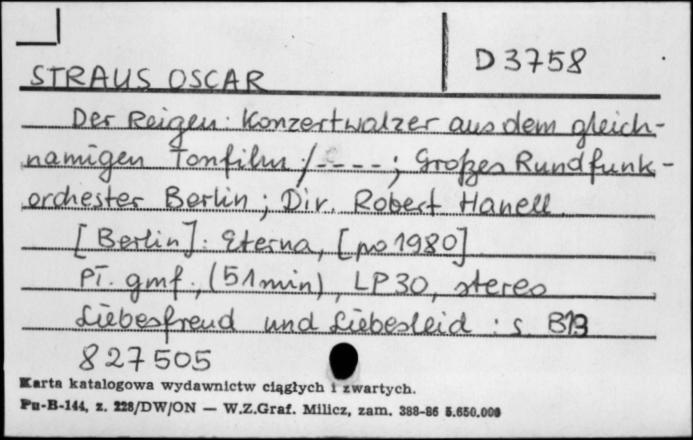 D 3758
STRAUS OSCAR
Der Reigen: Konzertwalzer aus dem gleich-
namigen Tonfilm / ----; Großes Rundfunk-
orchester Berlin; Dir. Robert Hanell.
[Berlin]: Eterna, [po 1980]
Pł. gmf., (51 min), LP 30, stereo
Liebesfreud und Liebesleid : s. B13
827505
Karta katalogowa wydawnictw ciągłych i zwartych.
Pu-B-144, z. 228/DW/ON — W.Z.Graf. Milicz, zam. 388-86 5.650.000